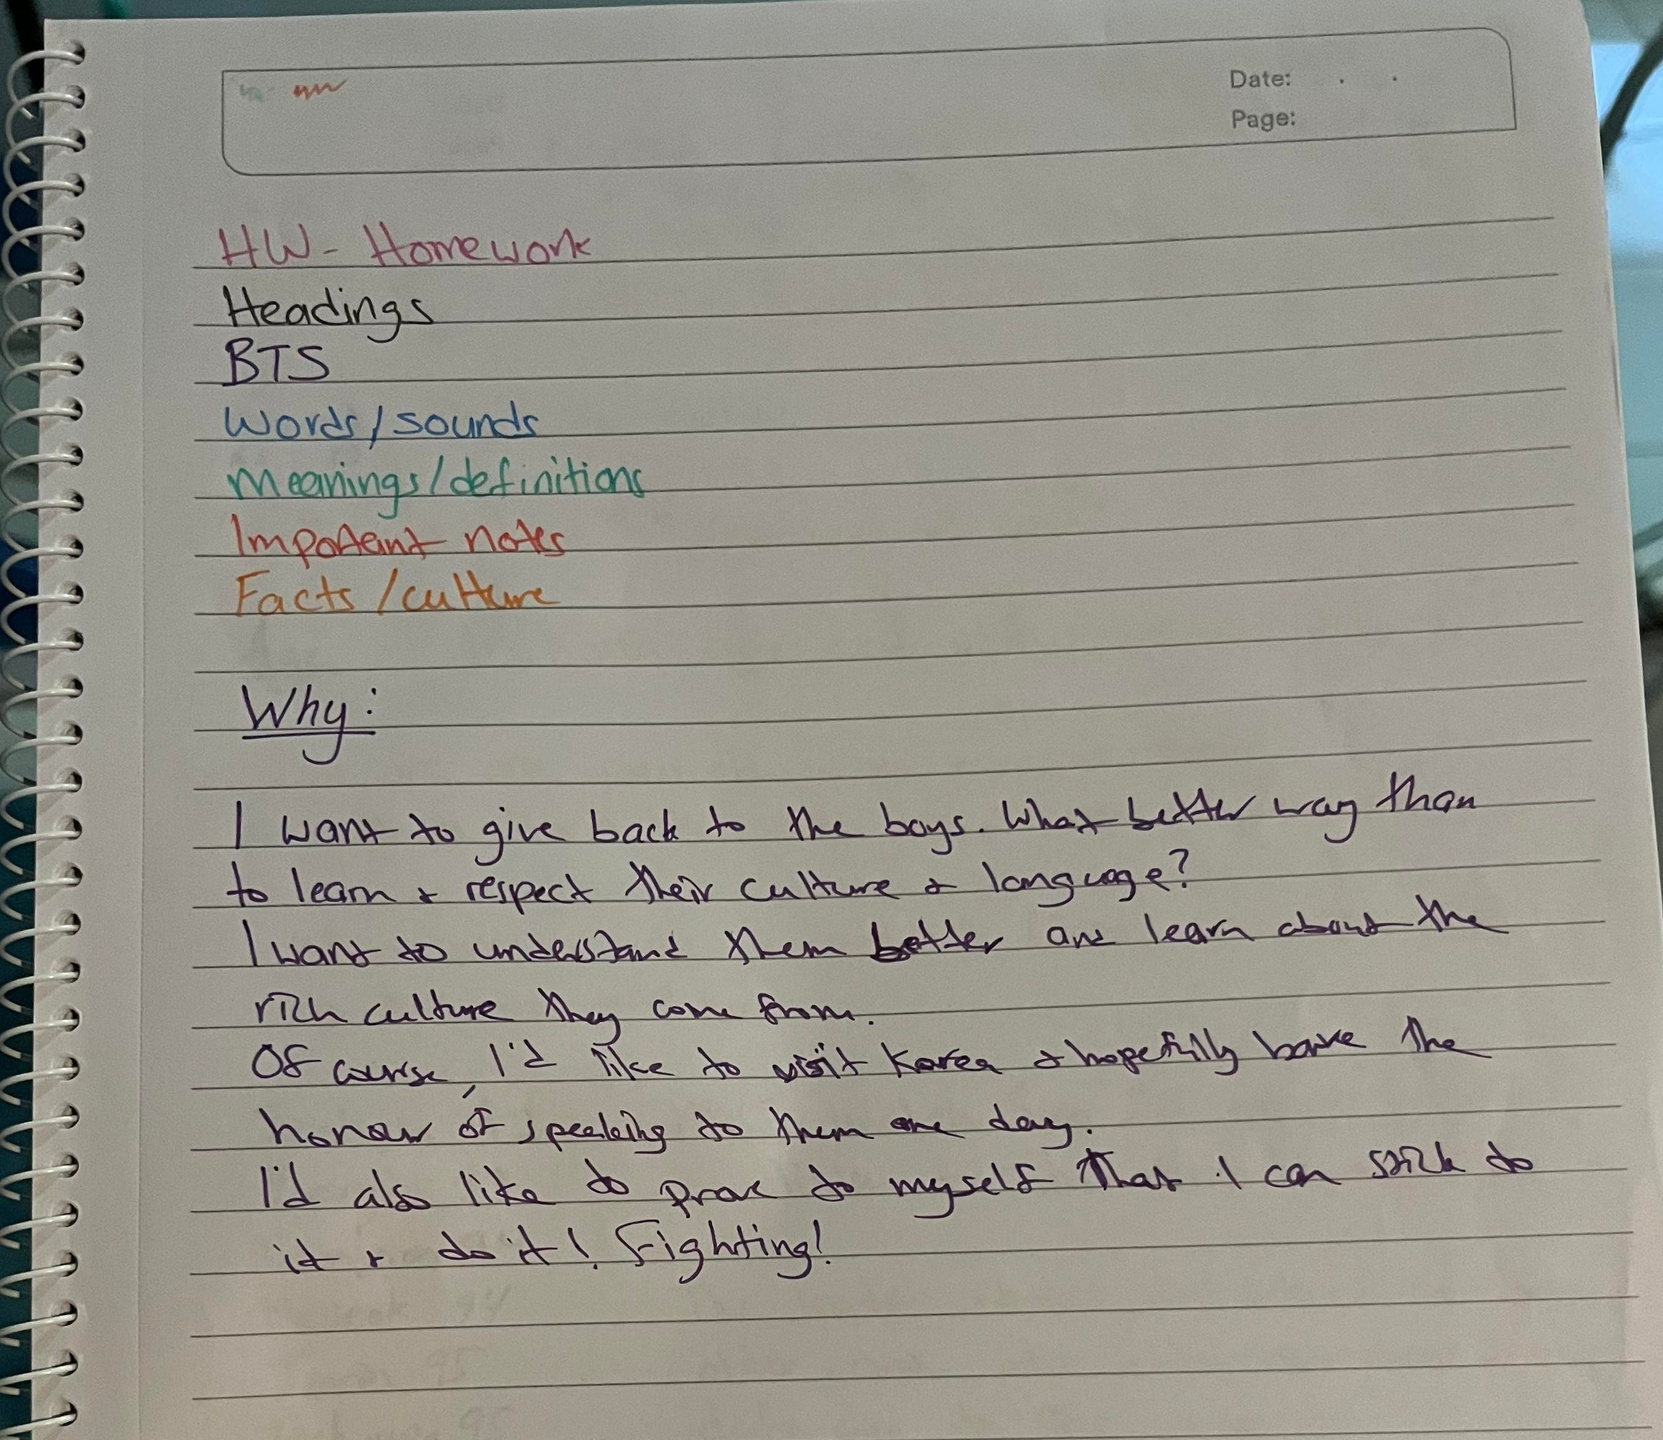 Date: . .
Page:
HW - Homework
Headings
BTS
Words/sounds
Meanings/definitions
Important notes
Facts/culture
Why:
I want to give back to the boys. What better way than
to learn + respect their culture + language?
I want to understand them better and learn about the
rich culture they come from.
Of course, I'd like to visit Korea + hopefully have the
honour of speaking to them one day.
I'd also like to prove to myself that I can stick to
it + do it! Fighting!